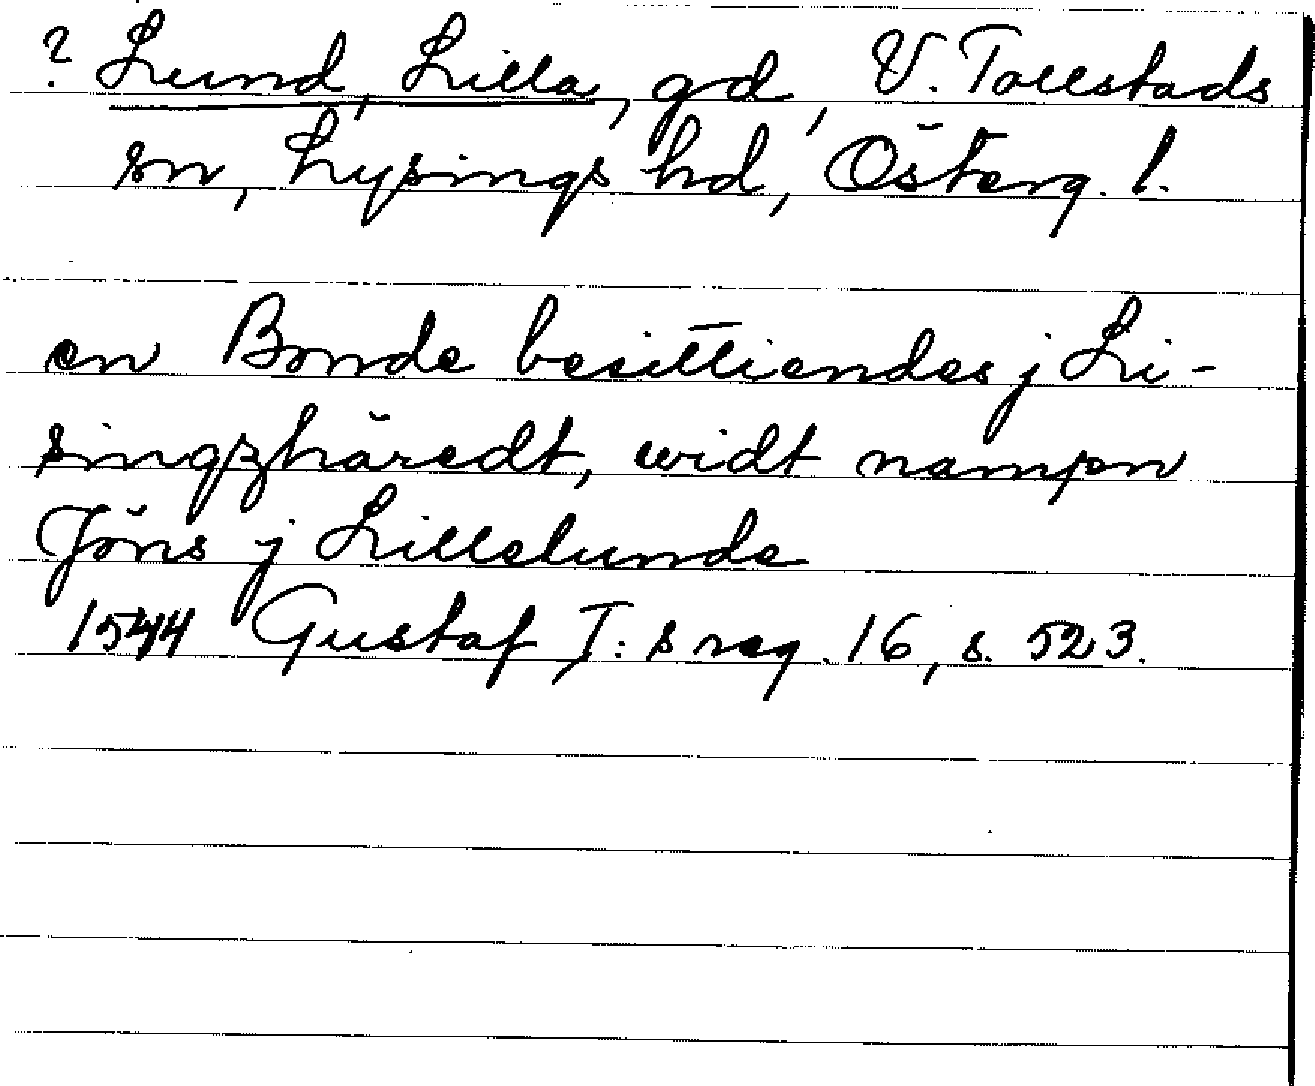 ? Lund, Lilla, gd, V. Tollstads
sn, Lysings hd, Österg. l.
en Bonde besittiendes j Li-
singzhäredt, widt nampn
Jöns j Lillelunde
1544 Gustaf I:s reg. 16, s. 523.